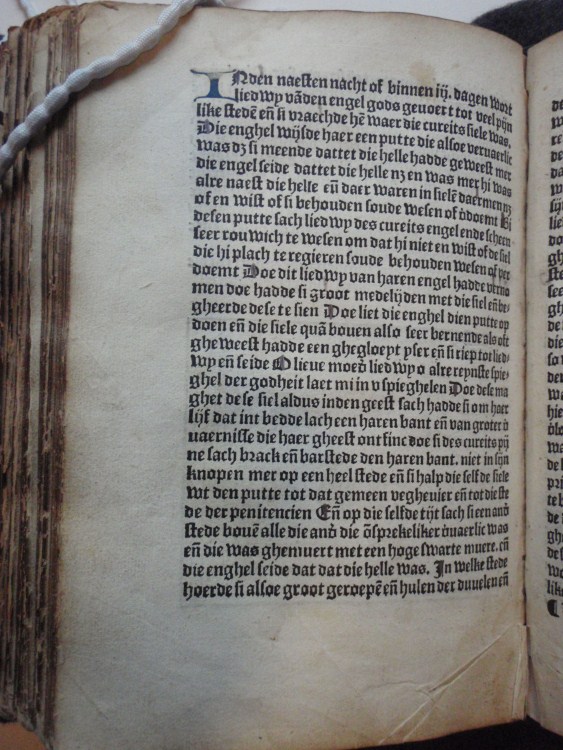 INden naesten nacht of binnen iij. dagen wort
liedwy vāden engel gods geuoert tot veel pijn
like stedē eñ si vraechde hē waer die cureits siele was.
Die enghel wijsde haer een putte die alsoe veruaerlic
was dz si meende dattet die helle hadde geweest mer
die engel seide dattet die helle nz en was mer hi was
alre naest die helle eñ daer waren in sielē daermen nz
of en wist of si behouden soude wesen of v̄doemt Si
desen putte sach liedwy des cureits engel ende scheen
seer rouwich te wesen om dat hi niet en wist of de siel
die hi plach te regieren soude behouden wesen of ver
doemt Doe dit liedwy van haren engel hadde verno
men doe hadde si groot medelijden met die siel eñ be-
gheerde dese te sien Doe liet die enghel dien putte op
doen eñ die siele quā bouen also seer bernende als oft
gheweest hadde een ghegloeyt yser eñ si riep tot lied-
wy eñ seide O lieue moed̄ liedwy o alre reynste spie-
ghel der godheit laet mi in v spieghelen Doe dese ma
ghet dese siel aldus inden geest sach hadde si om haer
lijf dat int bedde lach een haren bant eñ van groter v̄
uaernisse die haer gheest ontfinc doe si des cureits pij
ne sach brack eñ barstede den haren bant. niet in sijn
knopen mer op een heel stede eñ si halp die self de siele
wt den putte tot dat gemeen vegheuier eñ tot die ste
de der penitencien Eñ op die selfde tijt sach si een and̄
stede bouē alle die and̄ die ōsprekeliker v̄uaerlic was
eñ die was ghemuert met een hoge swarte muere. eñ
die enghel seide dat dat die helle was. In welke stede
hoerde si alsoe groot geroepē eñ hulen der duuelen eñ